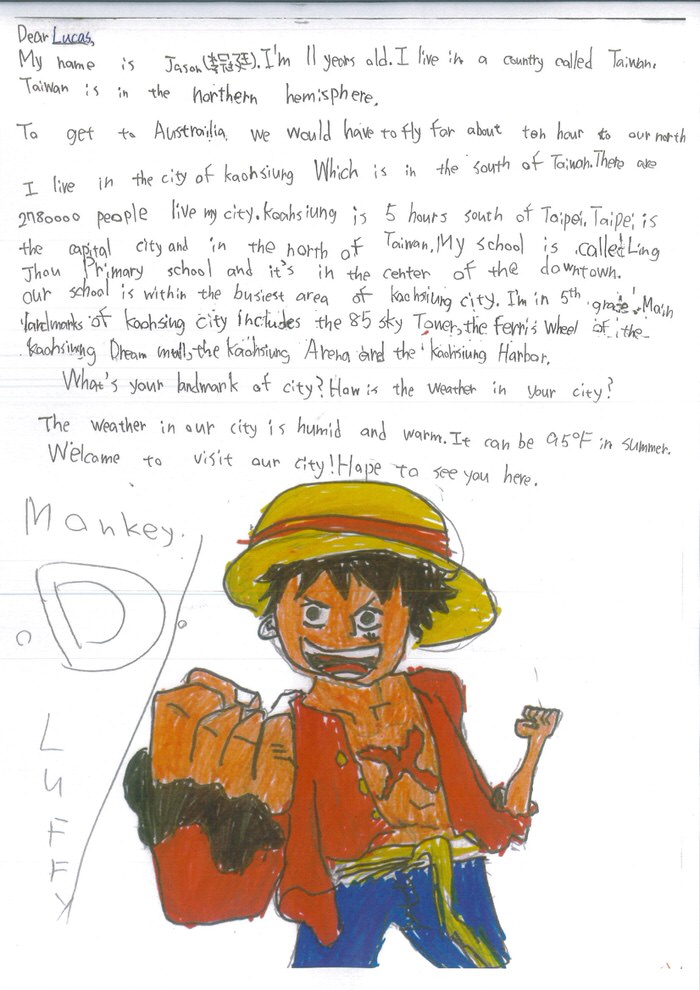 Dear Lucas,
My name is Jason(李冠廷).I'm 11 years old.I live in a country called Taiwan.
Taiwan is in the northern hemisphere.
To get to Austrailia, we would have to fly for about ten hour to our north
I live in the city of kaohsiung Which is in the south of Taiwan.There are
2780000 people live my city.Koahsiung is 5 hours south of Taipei.Taipei is
the capital city and in the north of Taiwan.My school is called Ling
Jhou Primary school and it's in the center of the downtown.
our school is within the busiest area of kaohsiung city. I'm in 5th grade. Main
landmarks of kaohsing city includes the 85 sky Tower, the ferris wheel of the
kaohsiung Dream mall, the kaohsiung Arena and the kaohsiung Harbor.
What's your landmark of city? How is the weather in your city?
The weather in our city is humid and warm.It can be 95°F in summer.
Welcome to visit our city! Hope to see you here.
Monkey.
D
LUFFY